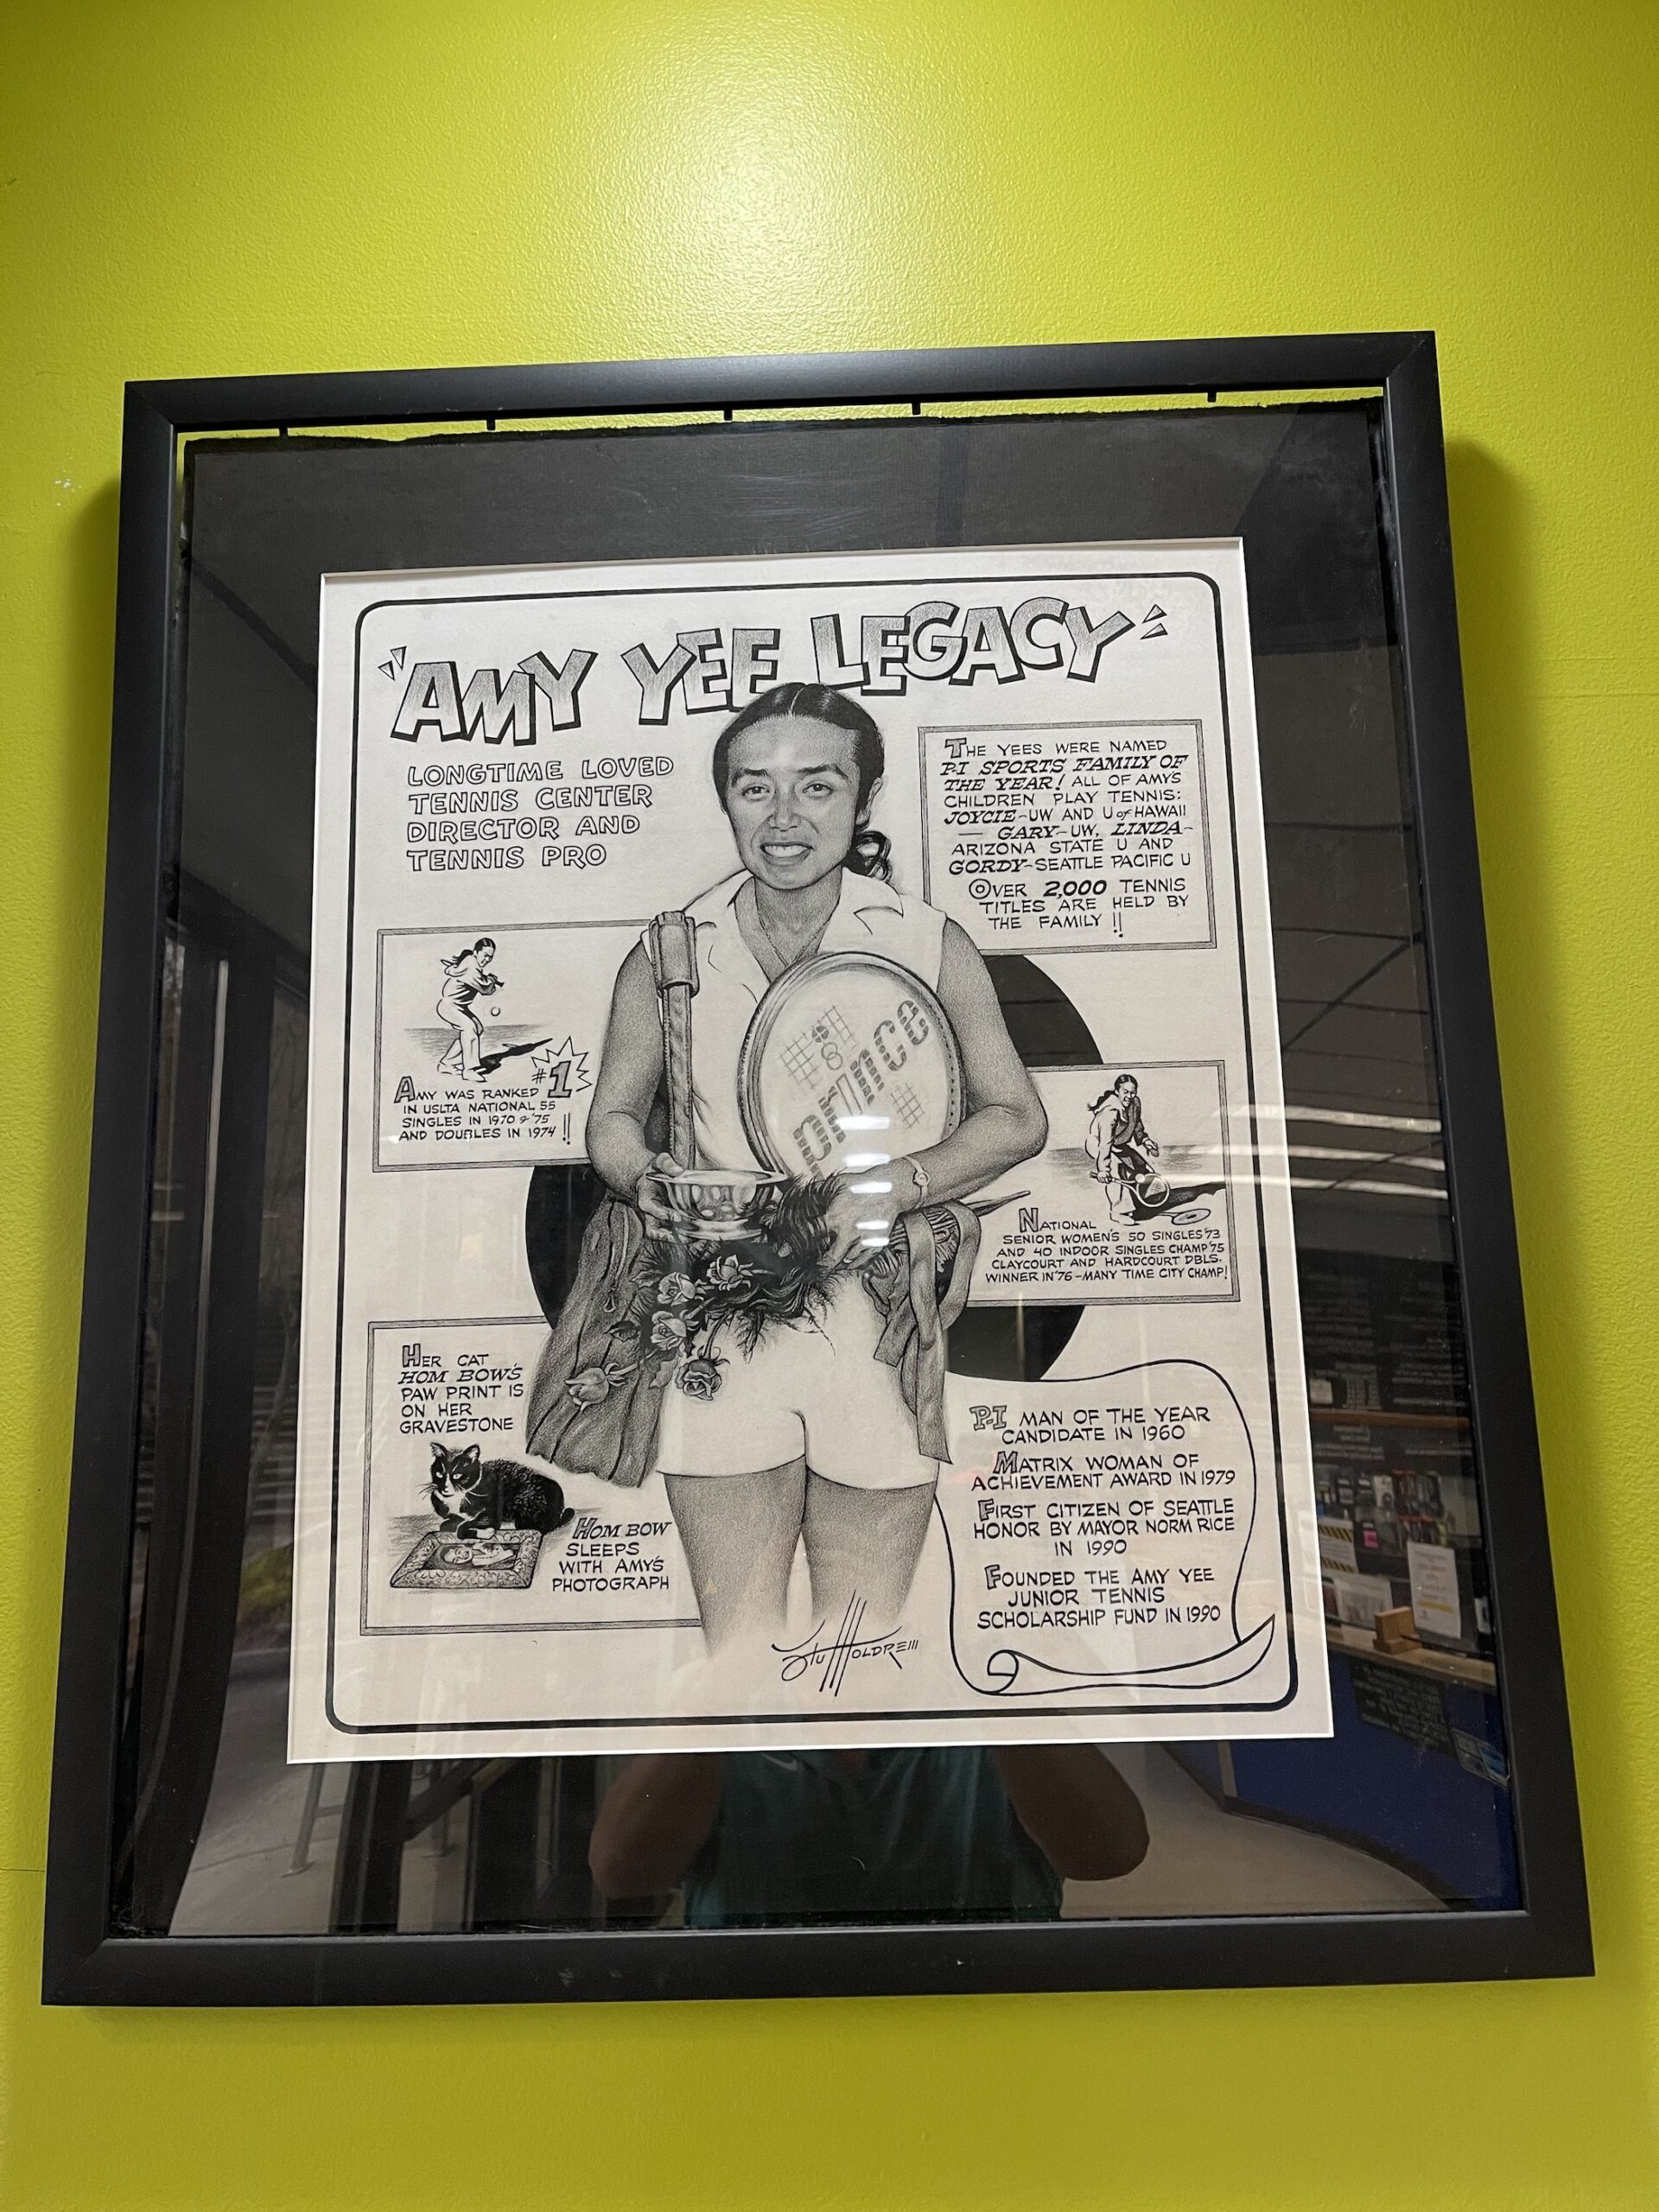 "AMY YEE LEGACY"
LONGTIME LOVED
TENNIS CENTER
DIRECTOR AND
TENNIS PRO
THE YEES WERE NAMED
P-I SPORTS FAMILY OF
THE YEAR! ALL OF AMY'S
CHILDREN PLAY TENNIS:
JOYCIE-UW AND U of HAWAII
— GARY-UW, LINDA-
ARIZONA STATE U AND
GORDY-SEATTLE PACIFIC U
OVER 2,000 TENNIS
TITLES ARE HELD BY
THE FAMILY!!
AMY WAS RANKED #1
IN USLTA NATIONAL 55
SINGLES IN 1970 & '75
AND DOUBLES IN 1974!!
NATIONAL
SENIOR WOMEN'S 50 SINGLES '73
AND 40 INDOOR SINGLES CHAMP '75
CLAYCOURT AND HARDCOURT DBLS.
WINNER IN '76-MANY TIME CITY CHAMP!
HER CAT
HOM BOW'S
PAW PRINT IS
ON HER
GRAVESTONE
HOM BOW
SLEEPS
WITH AMY'S
PHOTOGRAPH
P-I MAN OF THE YEAR
CANDIDATE IN 1960
MATRIX WOMAN OF
ACHIEVEMENT AWARD IN 1979
FIRST CITIZEN OF SEATTLE
HONOR BY MAYOR NORM RICE
IN 1990
FOUNDED THE AMY YEE
JUNIOR TENNIS
SCHOLARSHIP FUND IN 1990
STU MOLDREM